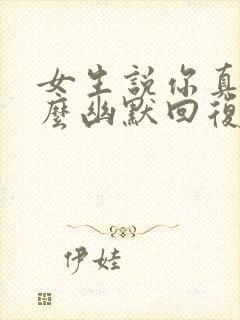 女生說你真
麼幽默回復
伊娃